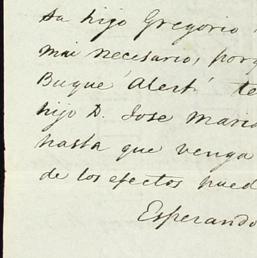 su hijo Gregorio
mui necesario, porq
Buque 'Alert' te
hijo D. Jose Maria
hasta que venga
de los efectos pued
Esperando